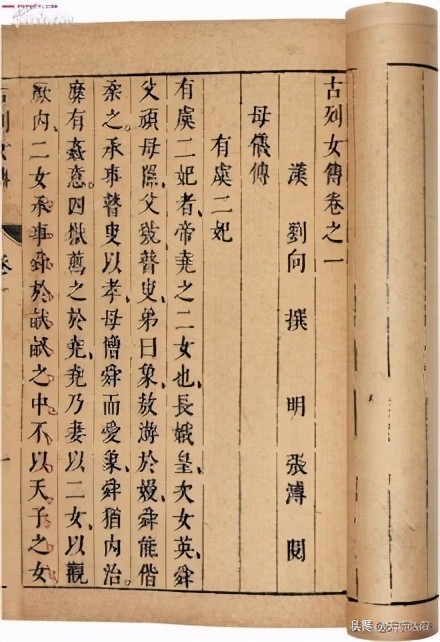 古列女傳卷之一
漢 劉向 撰 明 張溥 閱
母儀傳
有虞二妃
有虞二妃者、帝堯之二女也、長娥皇、次女英、舜
父頑母嚚、父號瞽叟、弟曰象、敖游於嫚、舜能偕
柔之、承事瞽叟以孝、母憎舜而愛象、舜猶内治、
靡有姦意、四嶽薦之於堯、堯乃妻以二女、以觀
厥内、二女承事舜於畎畝之中、不以天子之女
古列女傳
头条